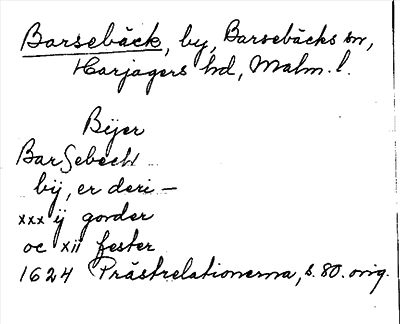 Barsebäck, by, Barsebäcks sn,
Harjagers hd, Malm. l.
Bÿer
BarSebech
bÿ, er deri —
xxx ÿ gorder
oc xii fester
1624 Prästrelationerna, s. 80. orig.